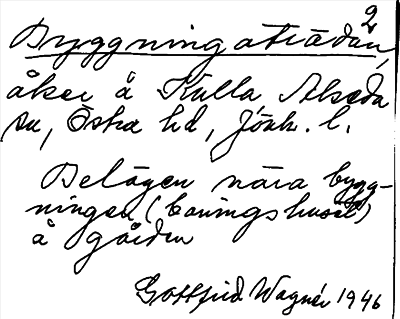 2
Byggningaträdan,
åker å Kulla Alseda
sn, Östra hd, Jönk. l.
Belägen nära bygg-
ningen (boningshuset)
å gården
Gottfrid Wagnér 1946